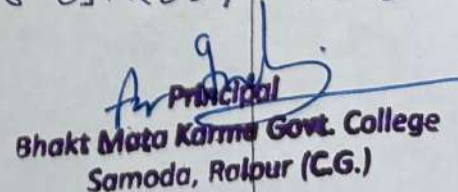 Principal
Bhakt Mata Karma Govt. College
Samoda, Raipur (C.G.)